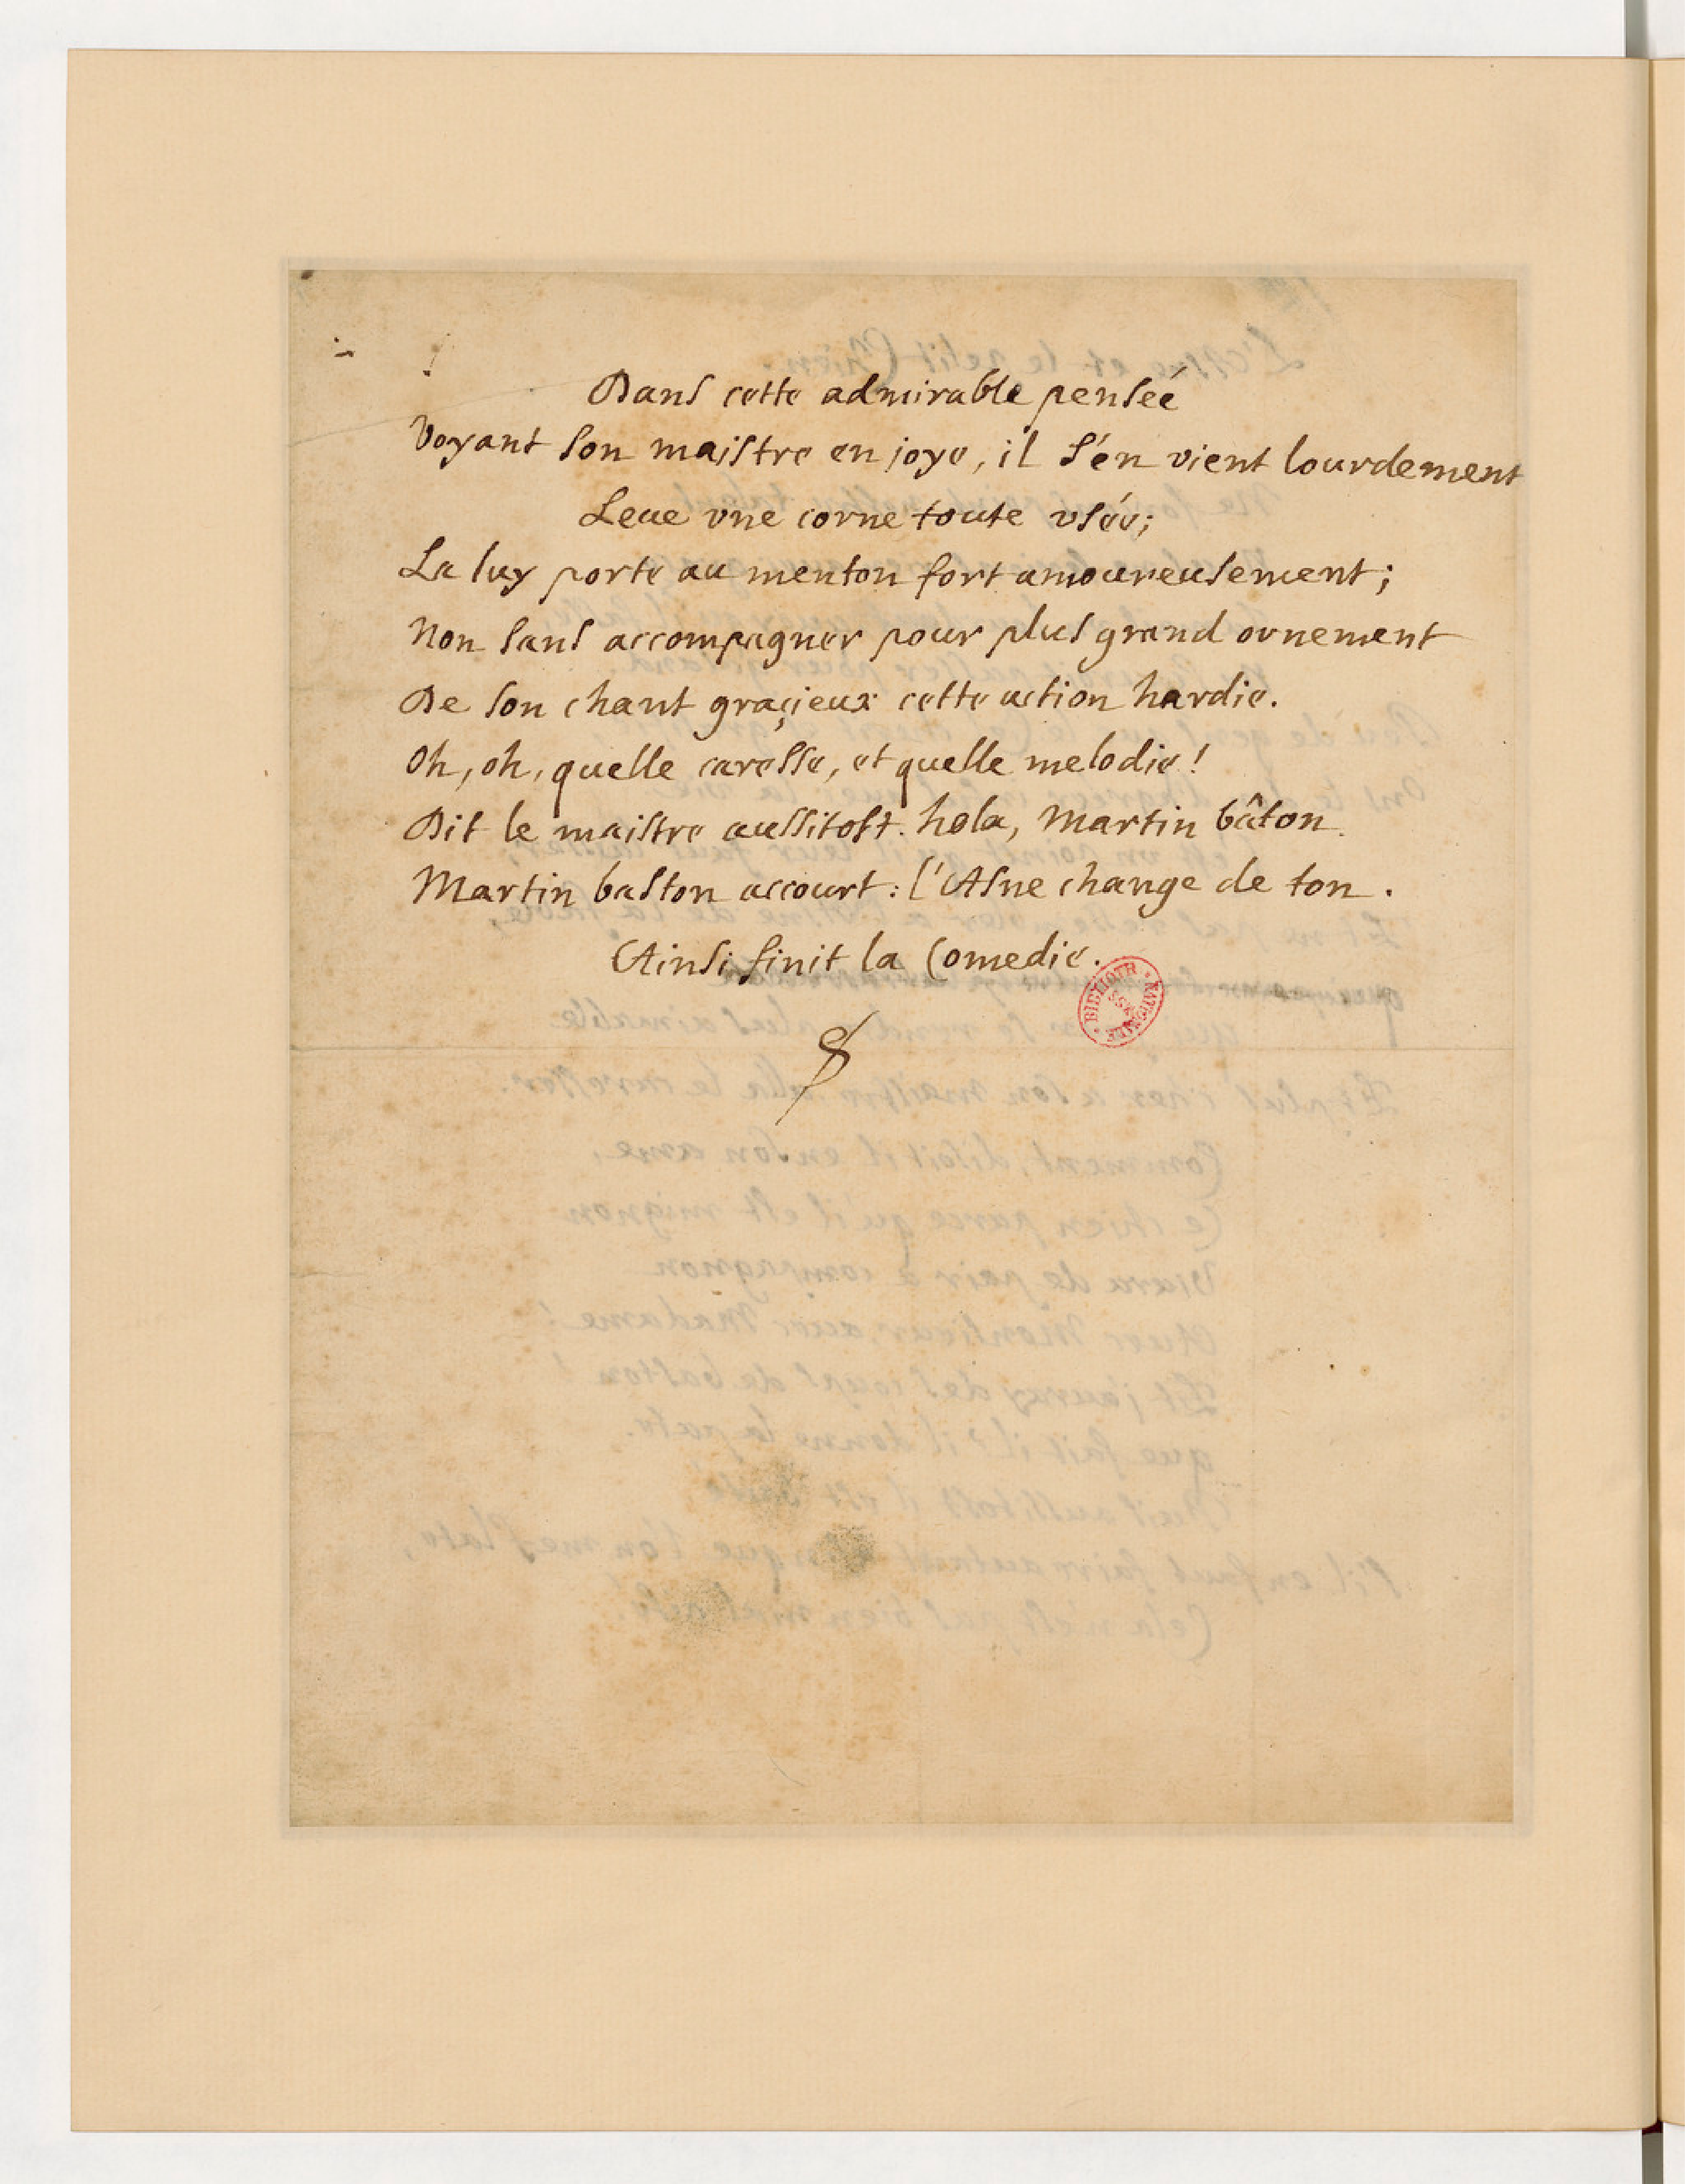 Dans cette admirable pensée
Voyant son maistre en joye, il s'en vient lourdement
Leue vne corne toute vsée;
La luy porte au menton fort amoureusement;
Non sans accompagner pour plus grand ornement
De son chant graçieux cette action hardie.
Oh, oh, quelle caresse, et quelle melodie!
Dit le maistre aussitost. hola, Martin bâton.
Martin baston accourt: l'Asne change de ton.
Ainsi finit la Comedie.
BIBLIOTH NATIONALE
MSS